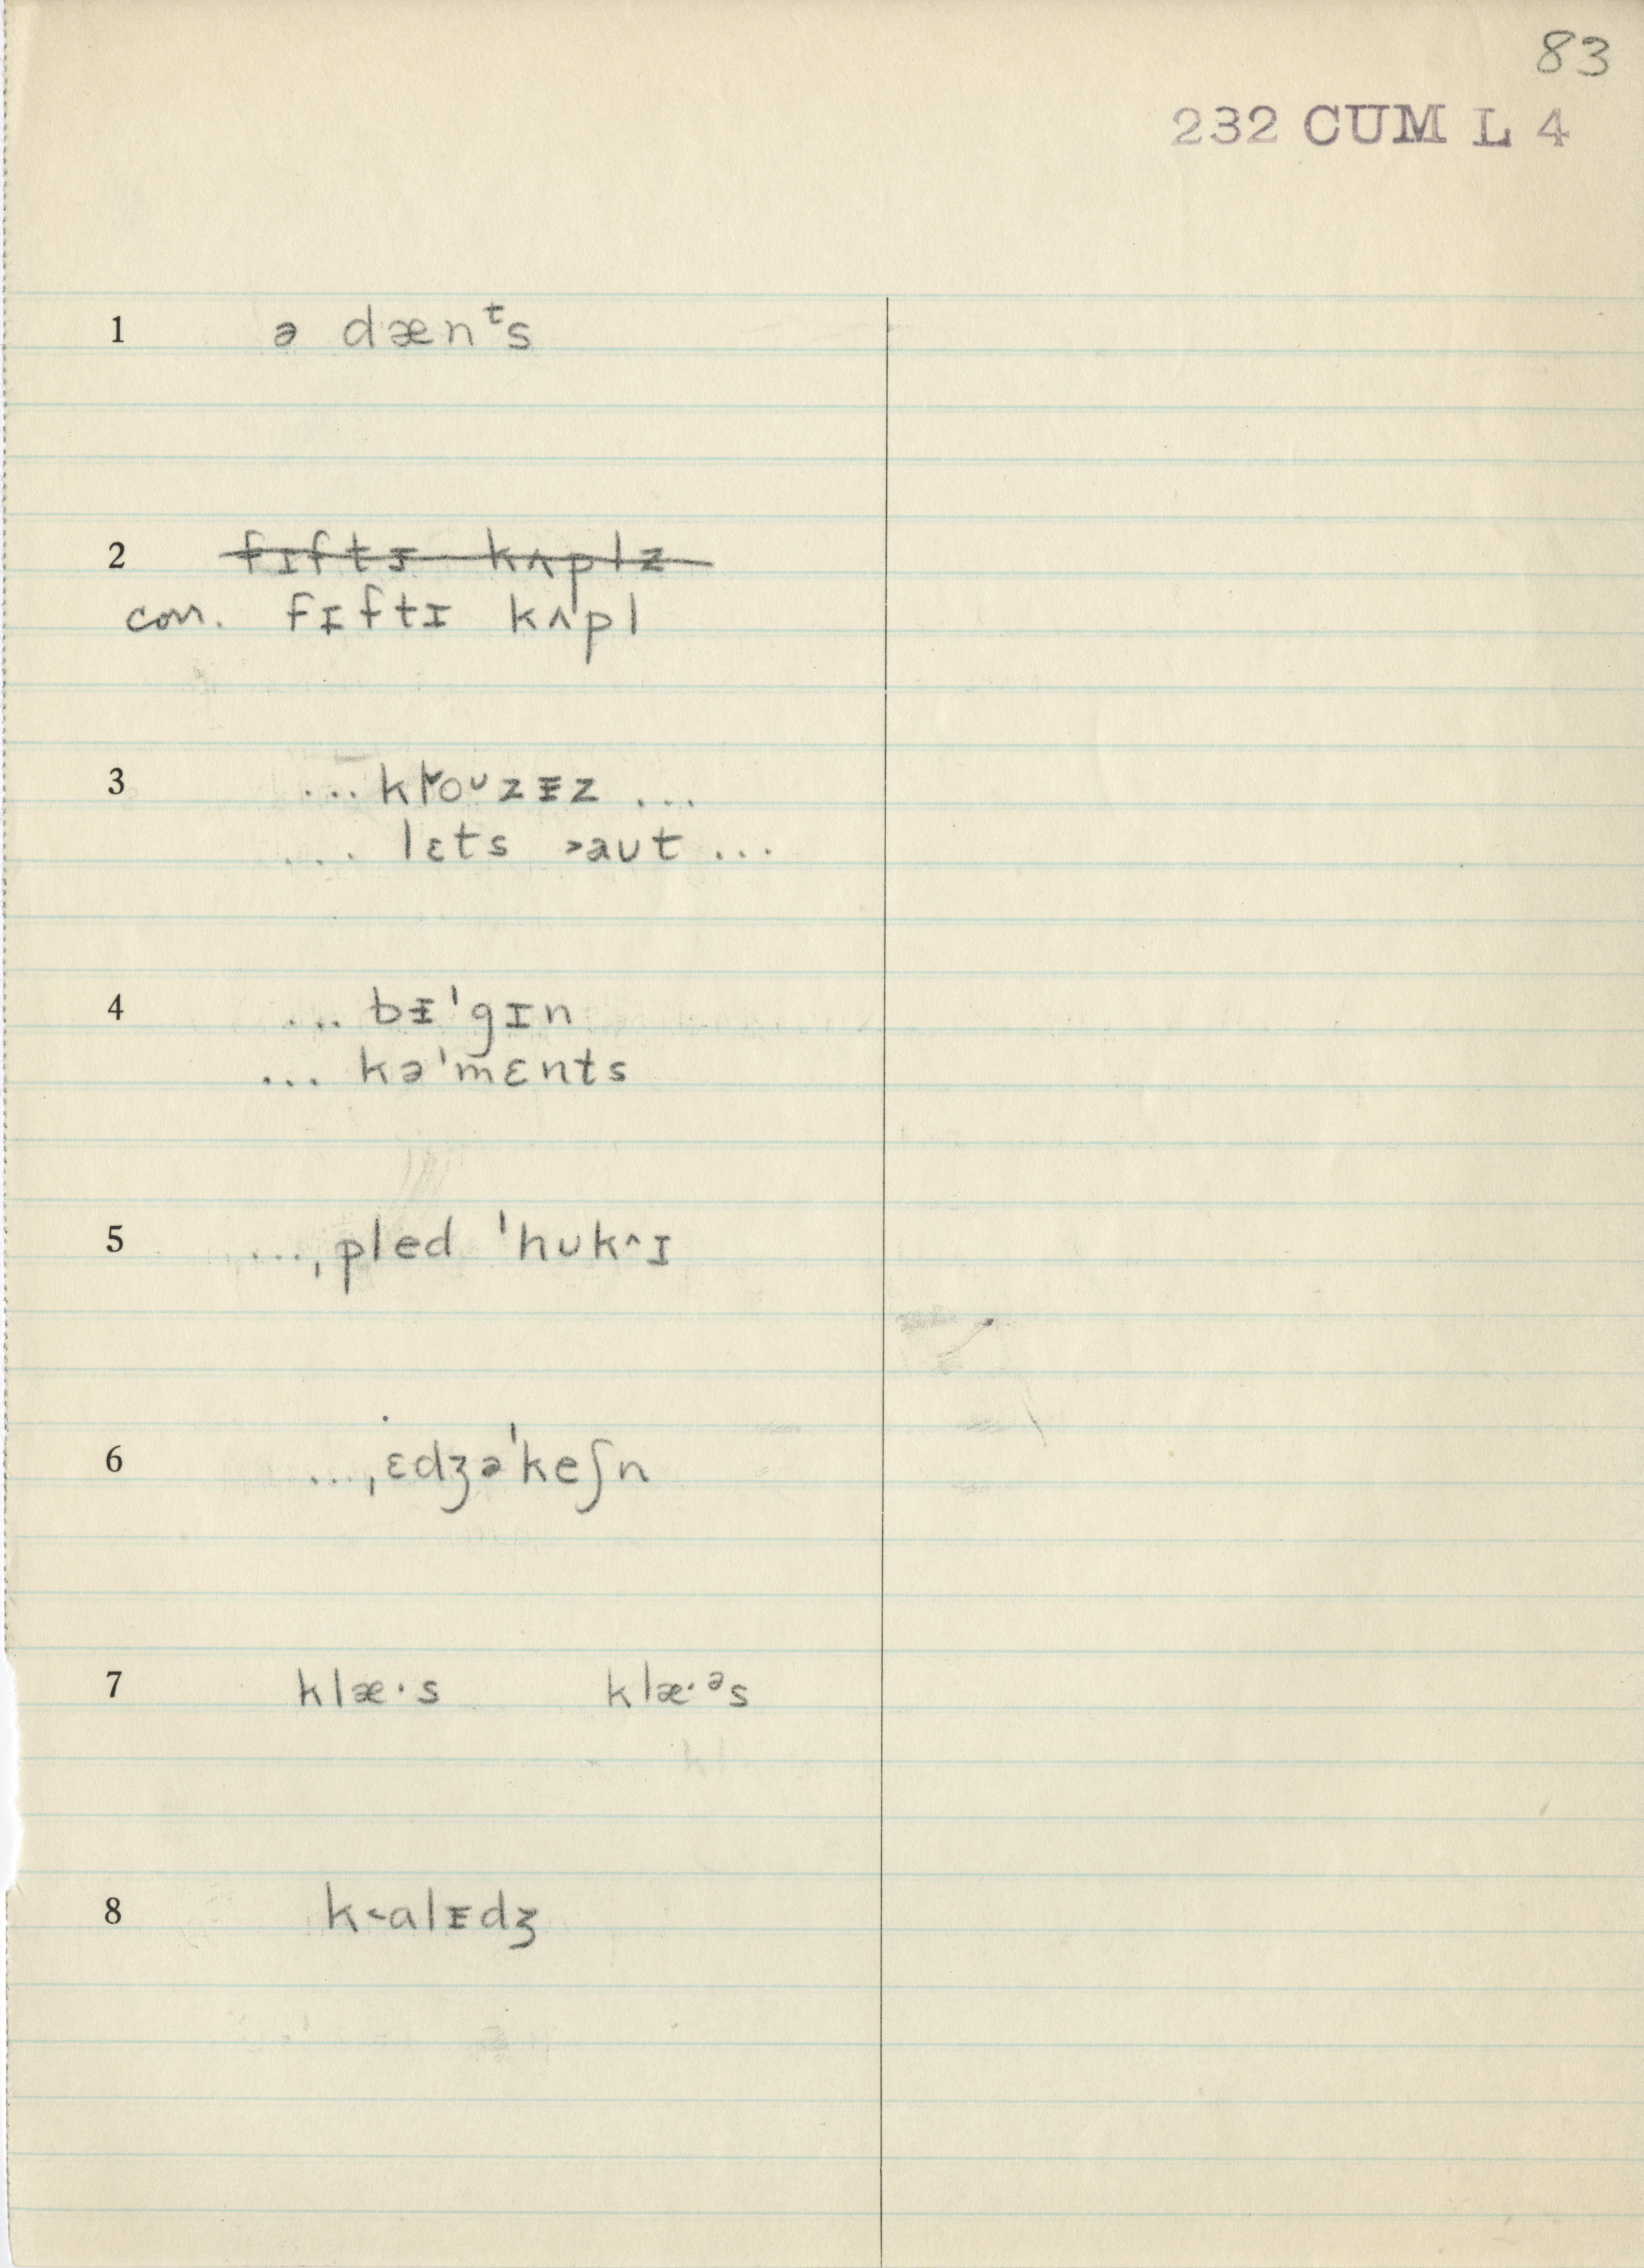 83
232 CUM L 4
1 ə dænᵗs
2 ~~fɪftɪ̵ kʌplz~~
corr. fɪftɪ kʌpl
3 ... kɫoᴜzɪ̵z ...
.... lɛts ˃aʊt ...
4 ... bɪ̵'gɪn
... kə'mɛnts
5 ...ˌpled 'hʊk^ɪ
6 ...ˌɛdʒə'keʃn
7 klæ·s klæ·ᵊs
8 k˂alɪ̵dʒ